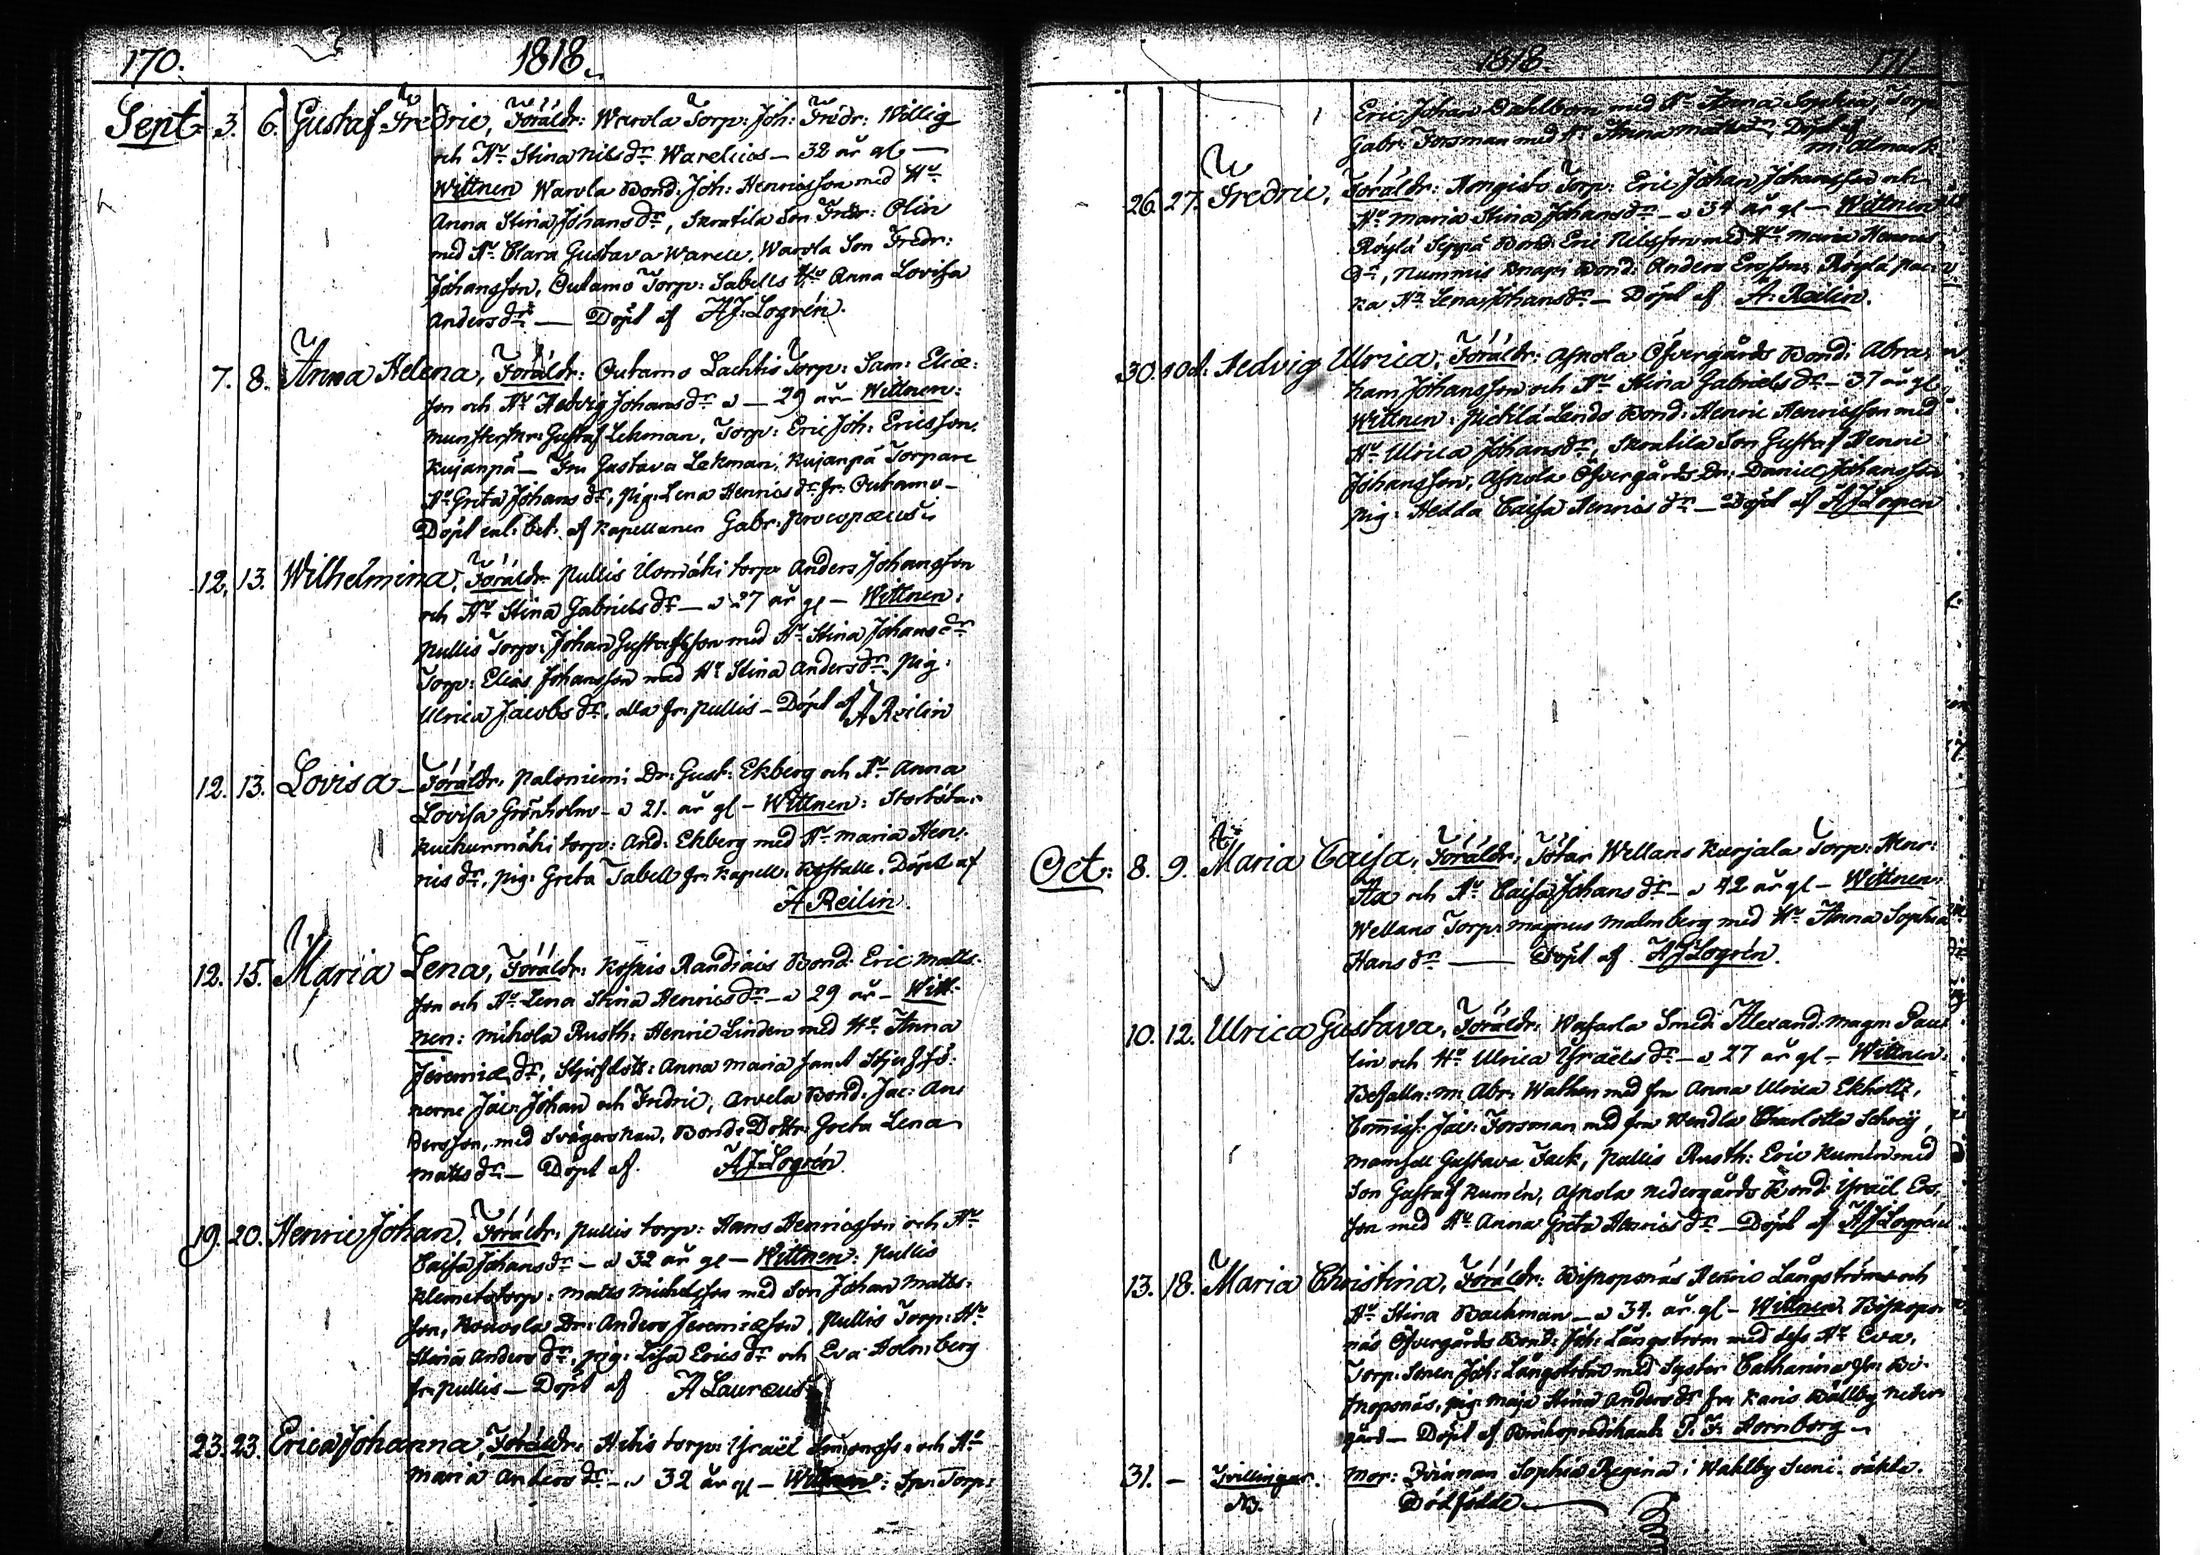 170. 1818.
Sept. 3. 6. Gustaf Fredric, Föräldr: Warola Torp: Joh: Fredr: Willig
och Hu Stina Nilsdr Warelius - 32 år gl -
Wittnen Warola Bond. Joh: Henricsson med Hu
Anna Stina Johansdr, Skratila Son Fredr: Olin
med Hu Clara Gustava Warell, Warola Son Fredr:
Johansson, Outamo Torp: Sabells Hu Anna Lovisa
Andersdr — Döpt af AJ: Logrén.
7. 8. Anna Helena, Föräldr: Outamo Lachtis Torp: Sam: Eliæ-
son och Hu Hedvig Johansdr a — 29 år - Wittnen:
Munsterskr: Gustaf Lekman, Torp: Eric Joh: Ericsson.
Kujanpä - Fru Gustava Lekman, Kujanpä Torpare
Hu Greta Johansdr, Pig: Lena Henricsdr fr: Outamo -
Döpt enl: bet: af Kapellanen Gabr: Procopæus.
12. 13. Wilhelmina, Föräldr: Pullis Uomäki torp: Anders Johansson
och Hu Stina Gabrielsdr - a 27 år gl - Wittnen:
Pullis Torp: Johan Gustafsson med Hu Stina Johansdr
Torp: Elias Johansson med Hu Stina Andersdr, Pig:
Ulrica Jacobsdr, alla fr: Pullis - Döpt af A Reilin
12. 13. Lovisa - Föräldr: Paloniemi Dr: Gust: Ekberg och Hu Anna
Lovisa Grönholm - a 21. år gl - Wittnen:
torp: And: Ekberg med Hu Maria Hen-
ricsdr, Pig: Greta Tabell fr: Kapell: Boställe, Döpt af
A Reilin.
12. 15. Maria Lena, Föräldr: Koskis Randiais Bond: Eric Matts-
son och Hu Lena Stina Henricsdr - a 29 år - Witt-
nen: Mikola Rusth: Henric Linden med Hu Anna
Jeremiædr, Stjufdottr: Anna Maria samt Stjufsö-
nerne Jac: Johan och Fredric, Arvela Bond: Jac: An-
dersson, med Svägerskan, Bond: Dottr: Greta Lena
Mattsdr - Döpt af AJ: Logrén.
19. 20. Henric Johan, Föräldr: Pullis torp: Hans Henricsson och Hu
Caisa Johansdr - a 32 år gl - Wittnen: Pullis
Klemets torp: Matts Michelsson med Son Johan Matts-
son, Dr: Anders Jeremiæson, Pullis Torp: Hu
Maria Andersdr, Pig: Lisa Ericsdr och Eva Holmberg
fr: Pullis - Döpt af A Lauræus
23. 23. Erica Johanna, Föräldr: torp: Israël Simonss: och Hu
Maria Andersdr - a 32 år gl - Wittnen: Torp:
1818. 171
Eric Johan Dahlbom med Hu Anna Sophia, Torp:
Gabr: Forsman med Hu Anna Mattsdr, Döpt af
26. 27. Fredric, Föräldr: Hongisto Torp: Eric Johan Johansson och
Hu Maria Stina Johansdr - a 34 år gl - Wittnen
Röylä Seppä Bond: Eric Nilsson med Hu Maria Henrics
dr, Nummis Knapi Bond: Anders Ersson, Röylä
Hu Lena Johansdr - Döpt af A: Reilin.
30. 1 Oct: Hedvig Ulrica, Föräldr: Afsola Öfvergårds Bond: Abra-
ham Johansson och Hu Stina Gabrielsdr - 37 år gl
Wittnen: Pickilä Lends Bond: Henric Henricsson med
Hu Ulrica Johansdr, Skratila Son Gustaf Henric
Johansson, Öfvergårds Dr: Daniel Johansson
Pig: Hedda Caisa Henricsdr - Döpt af AJ Logren
Oct: 8. 9. Maria Caisa, Föräldr: Tötar Wellans Kurjala Torp: Henr:
Ax och Hu Caisa Johansdr - a 42 år gl - Wittnen:
Wellans Torp: Magnus Malmberg med Hu Anna Sophia
Hansdr — Döpt af AJ Logrén.
10. 12. Ulrica Gustava, Föräldr: Wasarla Smed: Alexand: Magn: Pau-
lin och Hu Ulrica Israelsdr - a 27 år gl - Wittnen:
Befalln: m: Abr: Wathen med fru Anna Ulrica Ekholtz,
Com̄iss: Jac: Forsman med fru Wendla Charlotta Schreij,
Mamsell Gustava Fack, Pallis Rusth: Eric Kumén med
Son Gustaf Kumén, Nedergårds Bond: Israël Ers-
son med Hu Anna Greta Henricsdr - Döpt af AJ Logrén
13. 18. Maria Christina, Föräldr: Biskopsnäs Henric Långström och
Hu Stina Backman - a 34. år gl - Wittnen: Biskops-
näs Öfvergårds Bond: Joh: Långström med dess Hu Eva,
Torp: Sonen Joh: Långström med Syster Catharina fr: Bi-
skopsnäs, Pig: Maja Stina Andersdr fr: Karis Bällby Neder-
gård - Döpt af Brukspredikant P. F. Hornborg -
31. - Tvillingar. Mor: Qvinnan Sophia Regina i Wahlby
NB. Dödfödde